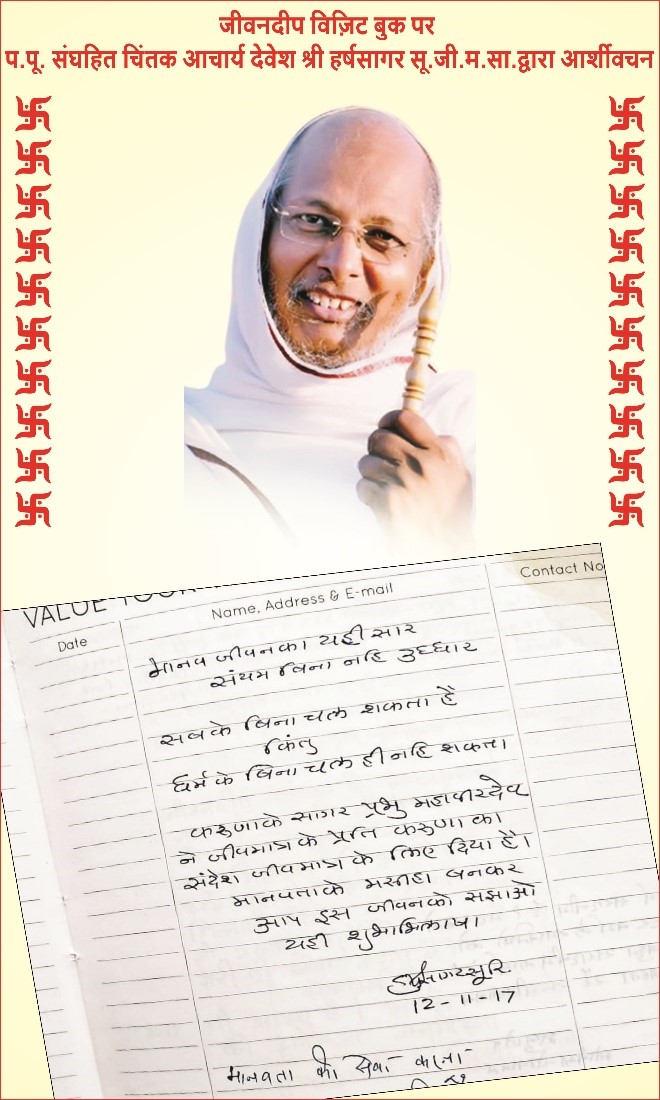 जीवनदीप विज़िट बुक पर
प.पू. संघहित चिंतक आचार्य देवेश श्री हर्षसागर सू.जी.म.सा.द्वारा आर्शीवचन
VALUE
Date
Name, Address & E-mail
Contact No
मानव जीवनका यही सार
संयम बिना नहि उध्धार
सबके बिना चल शकता है
किंतु
धर्म के बिना चल ही नहि शकता।
करुणाके सागर प्रभु महावीरदेव
ने जीवमात्र के प्रति करुणा का
संदेश जीवमात्र के लिए दिया है।
मानवताके मसीहा बनकर
आप इस जीवनको सजाओ
यही शुभाभिलाषा।
हर्षसागरसूरि
12-11-17
मानवता की सेवा करना